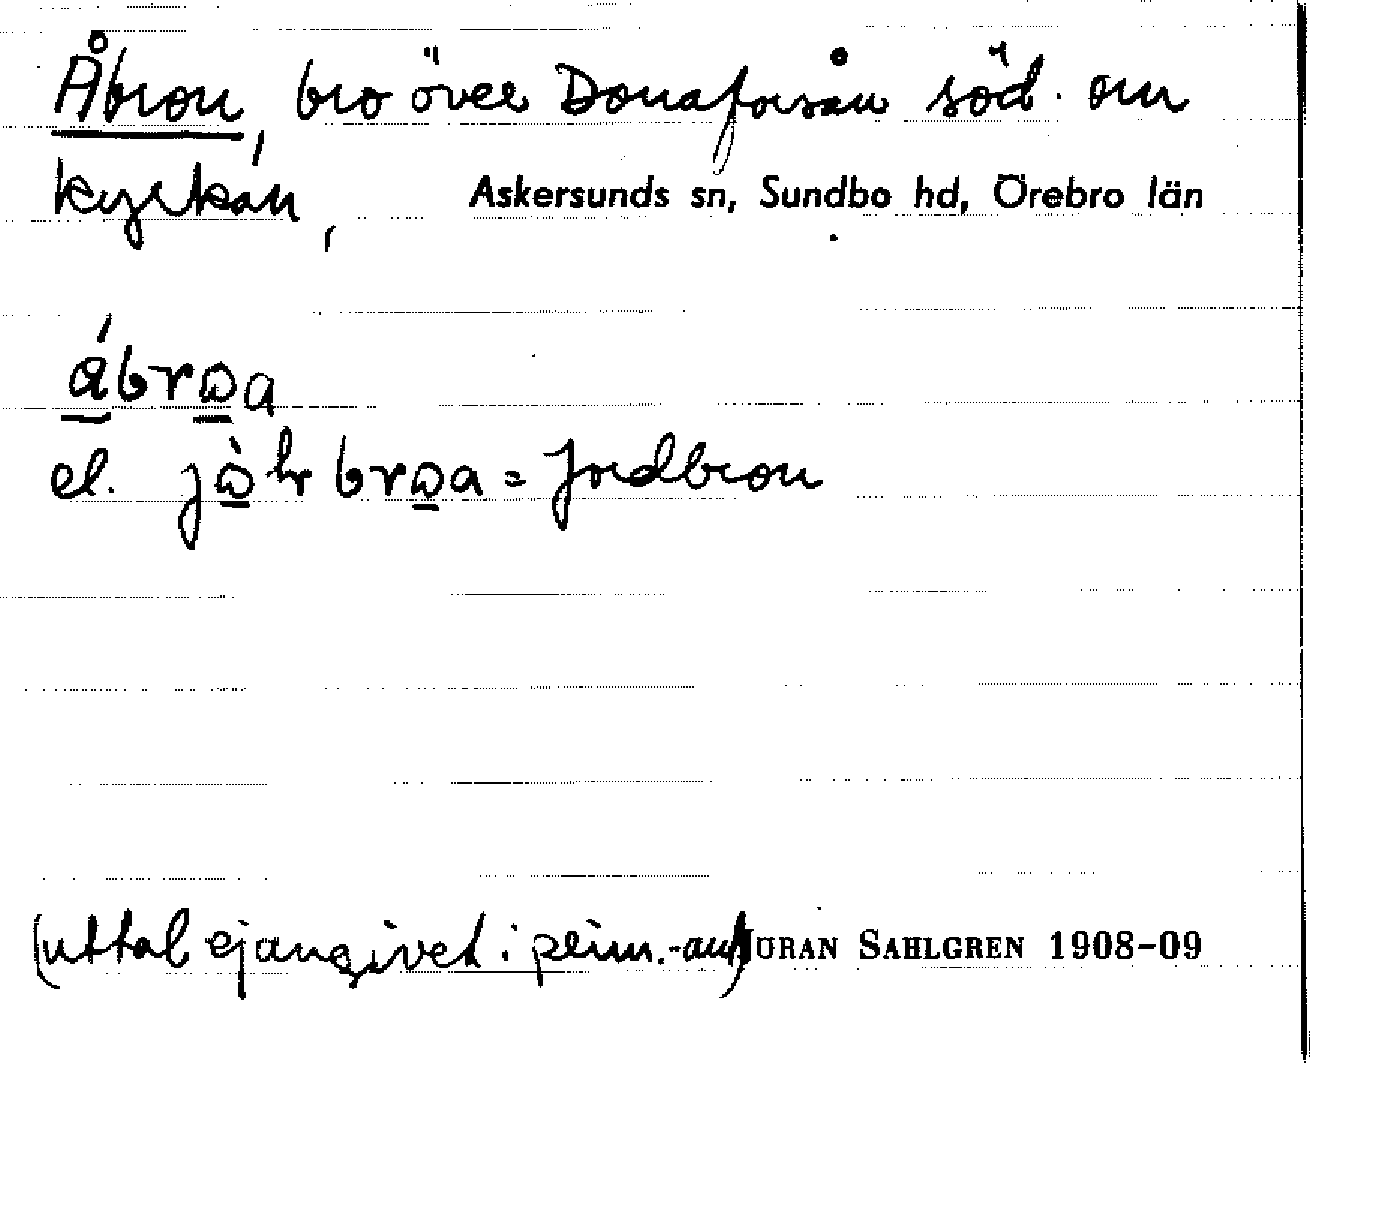 Åbron, bro över Donaforsån söd. om
kyrkan, Askersunds sn, Sundbo hd, Örebro län
el. = Jordbron
(uttal ej angivet i prim.-aut) JÖRAN SAHLGREN 1908-09